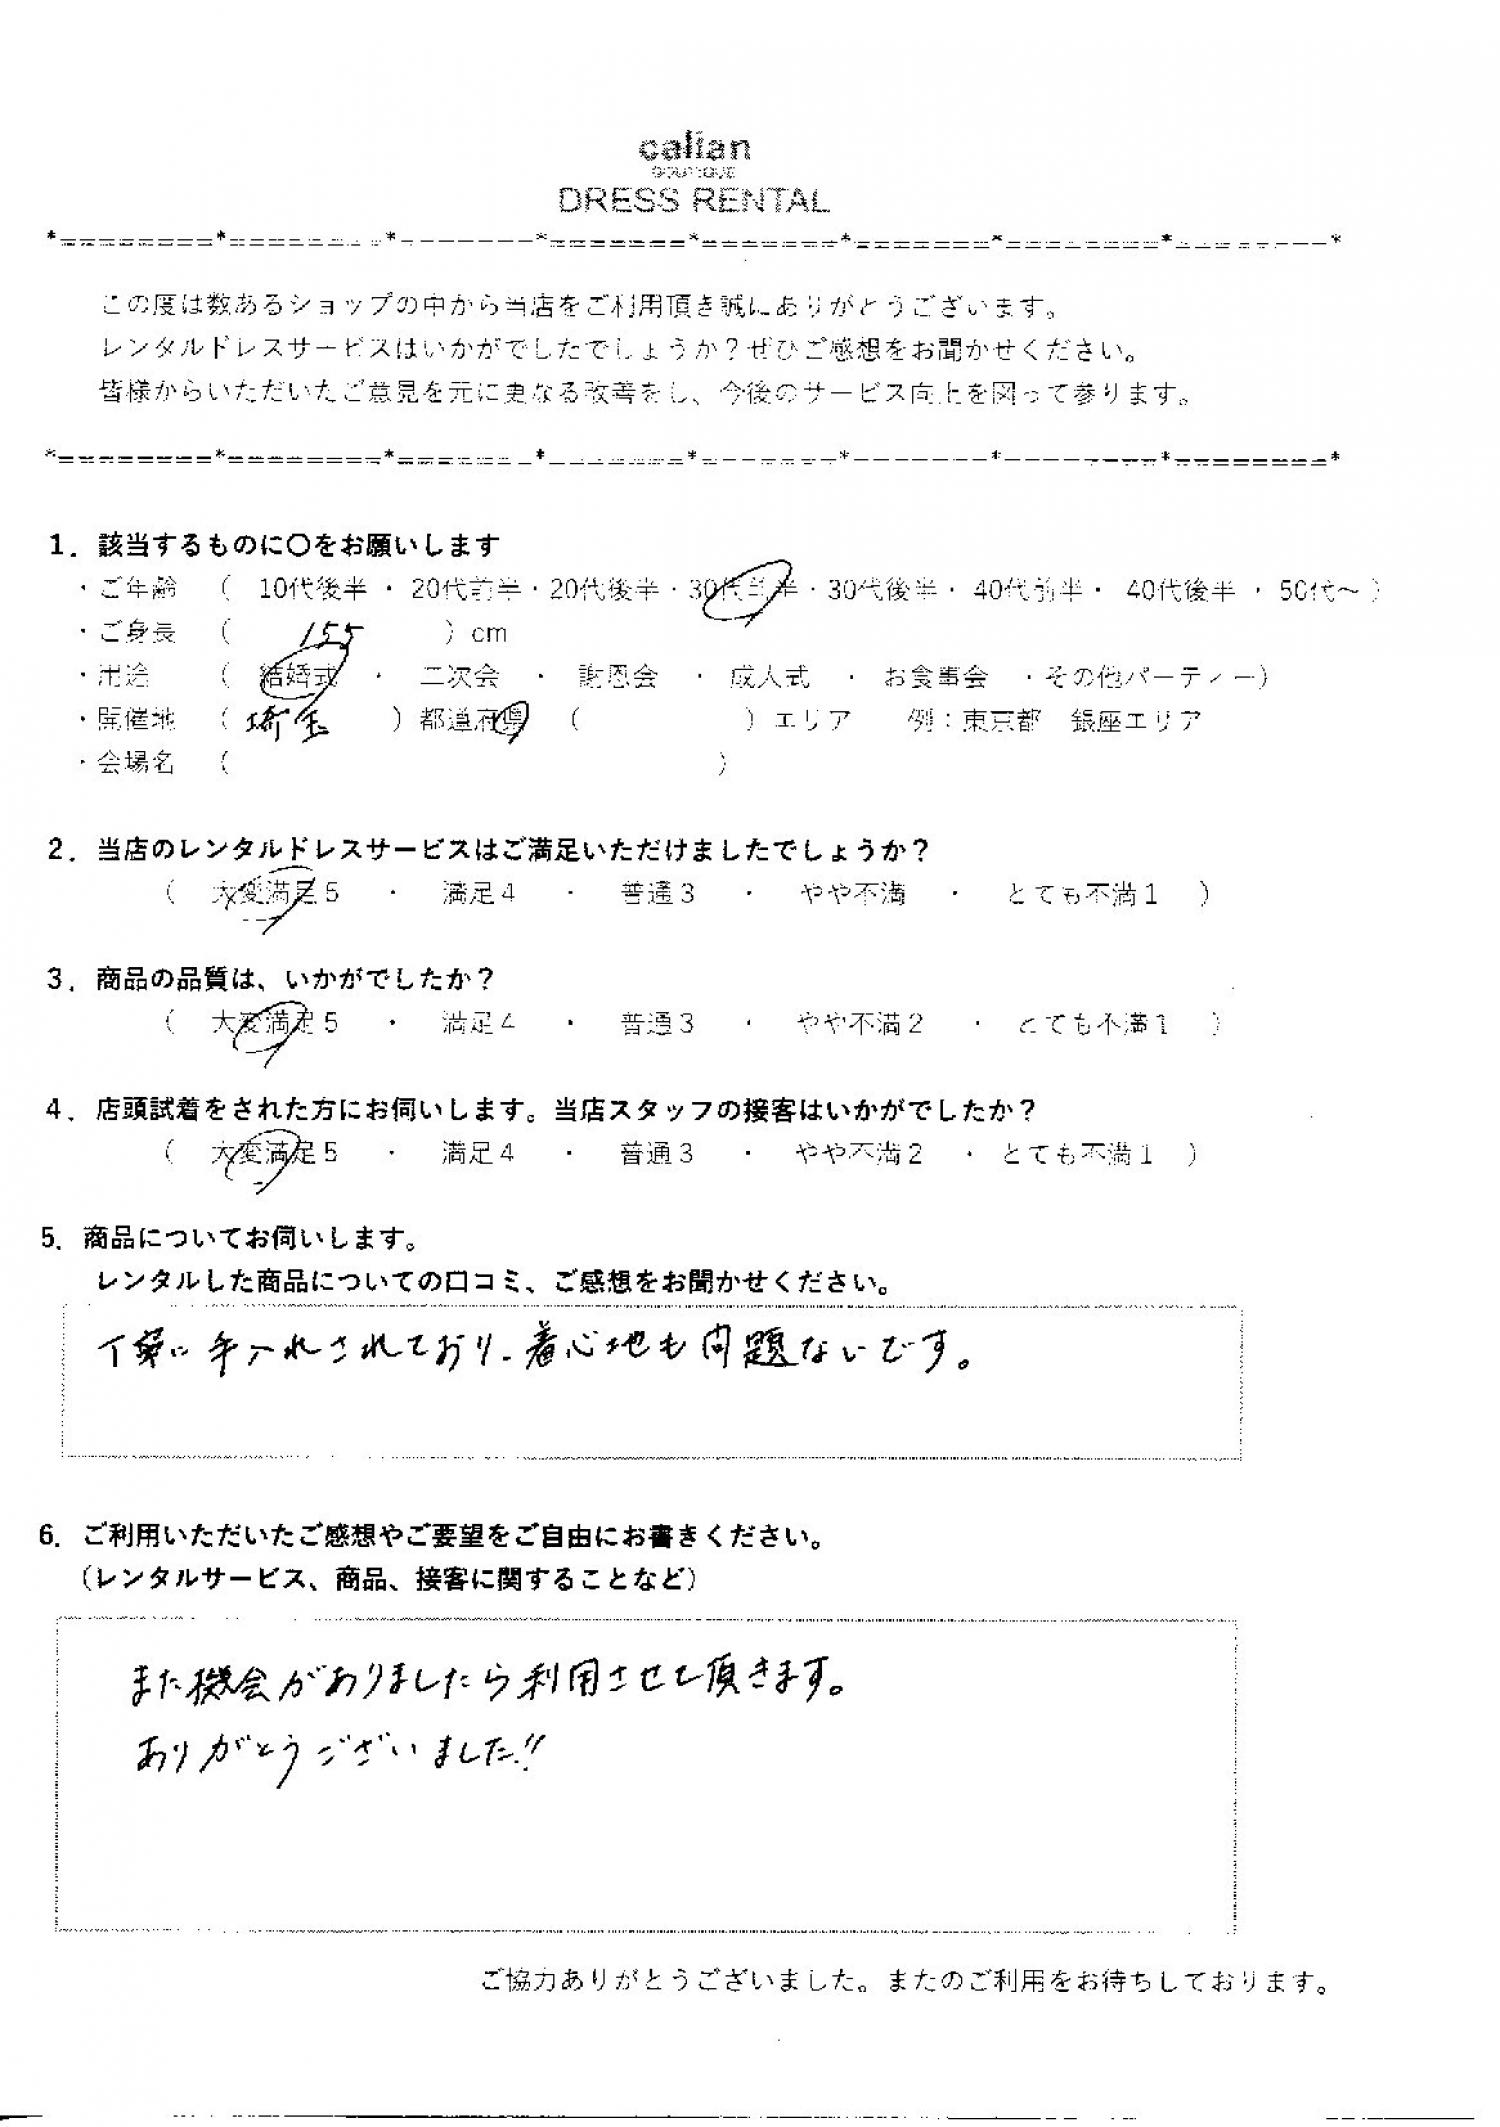 calian
BOUTIQUE
DRESS RENTAL
*========*========*=======*=======*=======*=======*========*========*
この度は数あるショップの中から当店をご利用頂き誠にありがとうございます。
レンタルドレスサービスはいかがでしたでしょうか？ぜひご感想をお聞かせください。
皆様からいただいたご意見を元に更なる改善をし、今後のサービス向上を図って参ります。
*========*========*=======*=======*=======*=======*========*========*
1．該当するものに〇をお願いします
・ご年齢 （ 10代後半 ・ 20代前半・20代後半・30代前半・30代後半・ 40代前半・ 40代後半 ・ 50代～ ）
・ご身長 （ 155 ）cm
・用途 （ 結婚式 ・ 二次会 ・ 謝恩会 ・ 成人式 ・ お食事会 ・その他パーティー）
・開催地 （ 埼玉 ）都道府県 （ ）エリア 例：東京都 銀座エリア
・会場名 （ ）
2．当店のレンタルドレスサービスはご満足いただけましたでしょうか？
（ 大変満足５ ・ 満足４ ・ 普通３ ・ やや不満 ・ とても不満１ ）
3．商品の品質は、いかがでしたか？
（ 大変満足５ ・ 満足４ ・ 普通３ ・ やや不満２ ・ とても不満１ ）
4．店頭試着をされた方にお伺いします。当店スタッフの接客はいかがでしたか？
（ 大変満足５ ・ 満足４ ・ 普通３ ・ やや不満２ ・ とても不満１ ）
5．商品についてお伺いします。
レンタルした商品についての口コミ、ご感想をお聞かせください。
丁寧に手入れされており、着心地も問題ないです。
6．ご利用いただいたご感想やご要望をご自由にお書きください。
（レンタルサービス、商品、接客に関することなど）
また機会がありましたら利用させて頂きます。
ありがとうございました!!
ご協力ありがとうございました。またのご利用をお待ちしております。